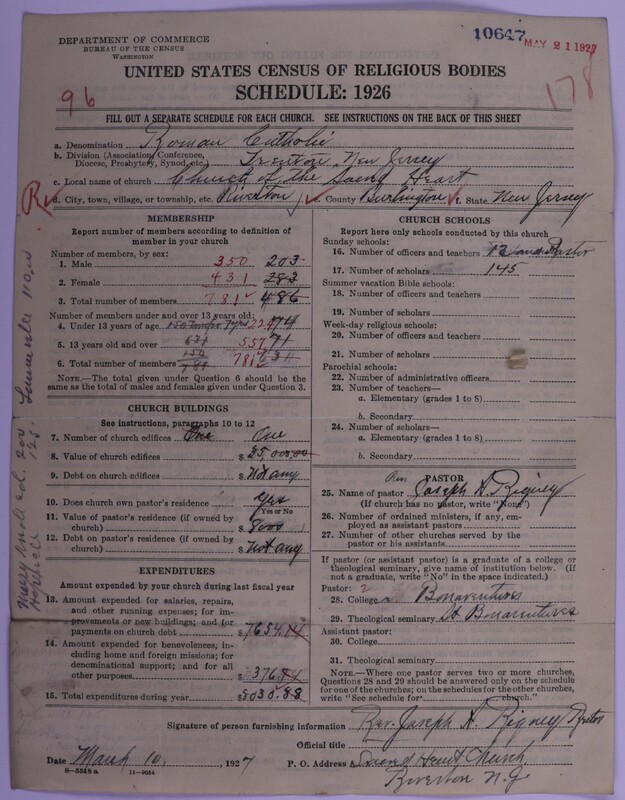 DEPARTMENT OF COMMERCE
BUREAU OF THE CENSUS
WASHINGTON
10647
MAY 21 1927
178
96
UNITED STATES CENSUS OF RELIGIOUS BODIES
SCHEDULE: 1926
FILL OUT A SEPARATE SCHEDULE FOR EACH CHURCH. SEE INSTRUCTIONS ON THE BACK OF THIS SHEET
a. Denomination Roman Catholic
b. Division (Association, Conference, Diocese, Presbytery, Synod, etc.) Trenton New Jersey
c. Local name of church Church of the Sacred Heart
R d. City, town, village, or township, etc. Riverton e. County Burlington f. State New Jersey
MEMBERSHIP
Report number of members according to definition of member in your church
Number of members, by sex:
1. Male 350 203
2. Female 431 283
3. Total number of members 781 486
Number of members under and over 13 years old:
4. Under 13 years of age 224
5. 13 years old and over 557
6. Total number of members 781
NOTE.—The total given under Question 6 should be the same as the total of males and females given under Question 3.
CHURCH BUILDINGS
See instructions, paragraphs 10 to 12
7. Number of church edifices One One
8. Value of church edifices $ 35,000.00
9. Debt on church edifices $ Not any
10. Does church own pastor's residence Yes
Yes or No
11. Value of pastor's residence (if owned by church) $ 8000
12. Debt on pastor's residence (if owned by church) $ not any
EXPENDITURES
Amount expended by your church during last fiscal year
13. Amount expended for salaries, repairs, and other running expenses; for improvements or new buildings; and for payments on church debt $ 7654.14
14. Amount expended for benevolences, including home and foreign missions; for denominational support; and for all other purposes $ 376.74
15. Total expenditures during year $ 8030.88
CHURCH SCHOOLS
Report here only schools conducted by this church
Sunday schools:
16. Number of officers and teachers 12 and Pastor
17. Number of scholars 145
Summer vacation Bible schools:
18. Number of officers and teachers
19. Number of scholars
Week-day religious schools:
20. Number of officers and teachers
21. Number of scholars
Parochial schools:
22. Number of administrative officers
23. Number of teachers—
a. Elementary (grades 1 to 8)
b. Secondary
24. Number of scholars—
a. Elementary (grades 1 to 8)
b. Secondary
PASTOR
25. Name of pastor Rev. Joseph A. Rigney
(If church has no pastor, write "None")
26. Number of ordained ministers, if any, employed as assistant pastors
27. Number of other churches served by the pastor or his assistants
If pastor (or assistant pastor) is a graduate of a college or theological seminary, give name of institution below. (If not a graduate, write "No" in the space indicated.)
Pastor: 2
28. College Bonaventures
29. Theological seminary St Bonaventures
Assistant pastor:
30. College
31. Theological seminary
NOTE.—Where one pastor serves two or more churches, Questions 28 and 29 should be answered only on the schedule for one of the churches; on the schedules for the other churches, write "See schedule for church."
Signature of person furnishing information Rev. Joseph A. Rigney Rector
Official title
Date March 10, 1927 P. O. Address Sacred Heart Church
Riverton N.J.
8-5518a 11-9054